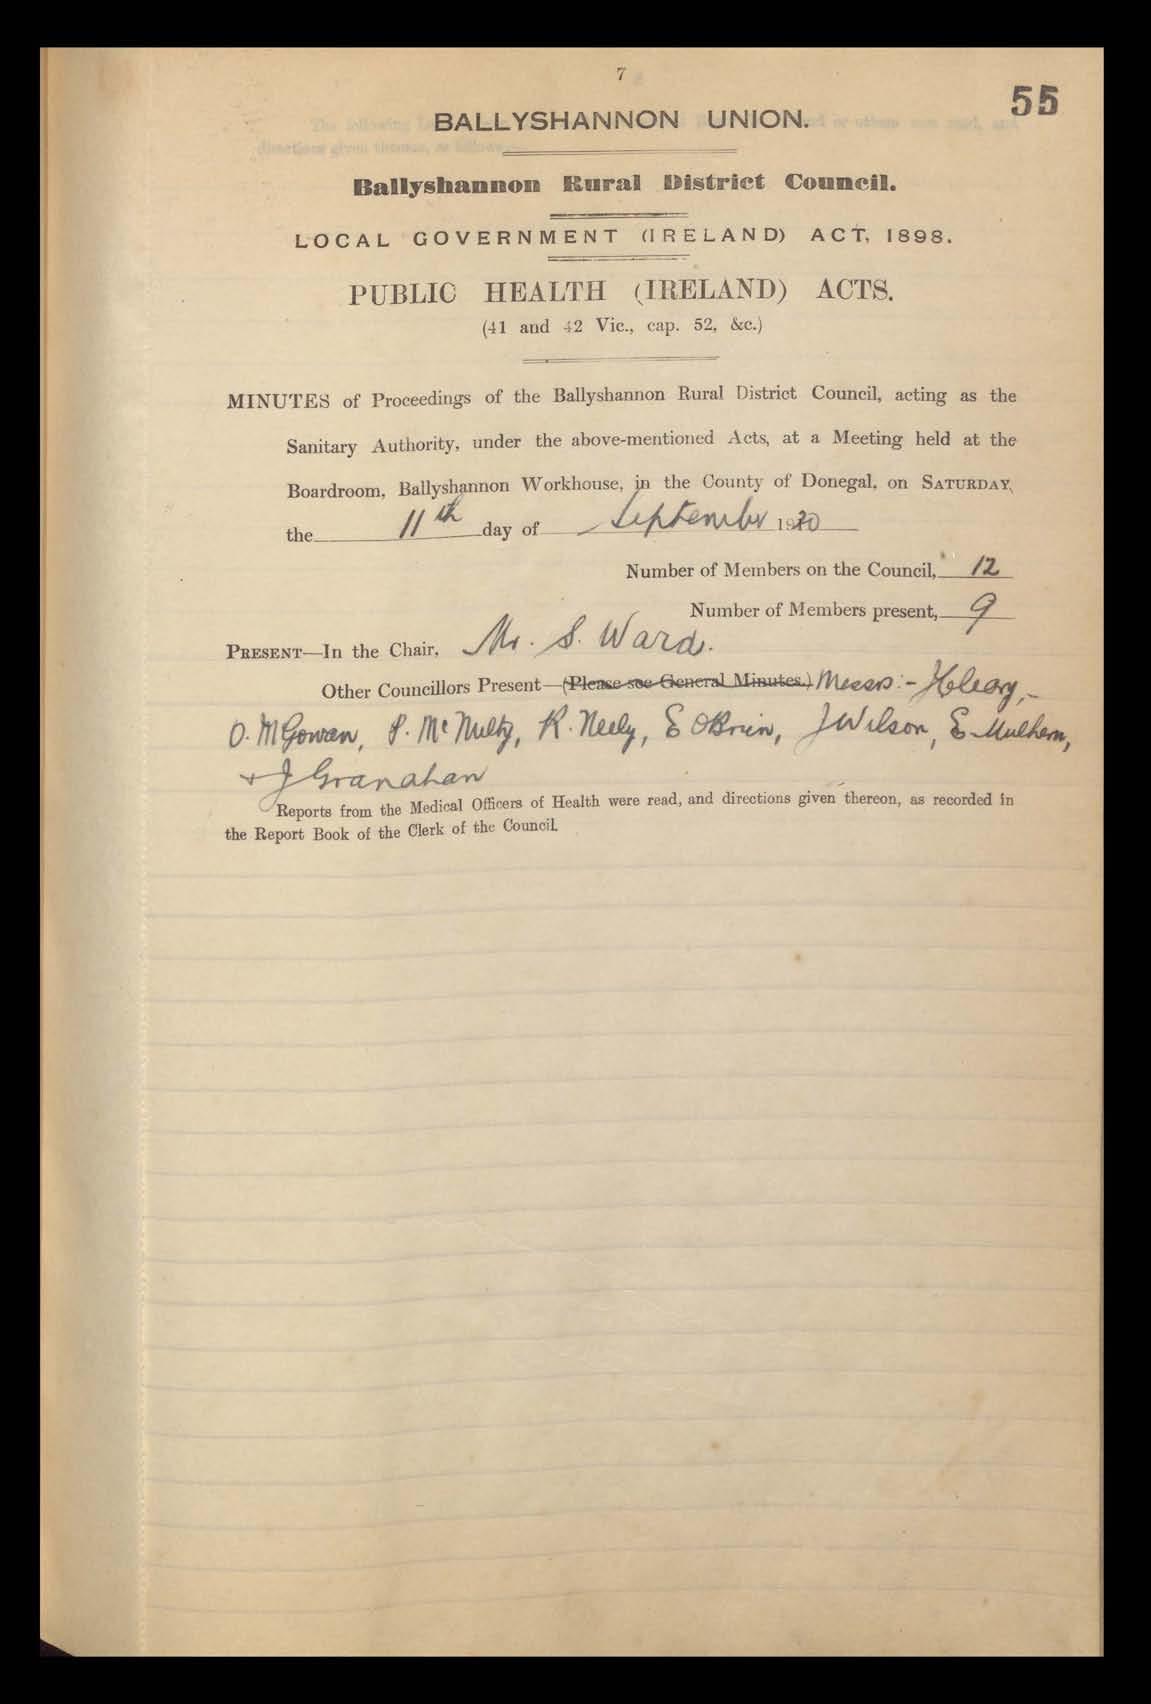 7
55
BALLYSHANNON UNION.
Ballyshannon Rural District Council.
LOCAL GOVERNMENT (IRELAND) ACT, 1898.
PUBLIC HEALTH (IRELAND) ACTS.
(41 and 42 Vic., cap. 52, &c.)
MINUTES of Proceedings of the Ballyshannon Rural District Council, acting as the
Sanitary Authority, under the above-mentioned Acts, at a Meeting held at the
Boardroom, Ballyshannon Workhouse, in the County of Donegal, on SATURDAY,
the 11th day of September 1920
Number of Members on the Council, 12
Number of Members present, 9
PRESENT—In the Chair, Mr. S. Ward.
Other Councillors Present—(Please see General Minutes.) Messrs:-
O. McGowan, P. McNulty, R. Neely, E OBrien, J Wilson, E. Mulhern,
+ J Granahan
Reports from the Medical Officers of Health were read, and directions given thereon, as recorded in
the Report Book of the Clerk of the Council.